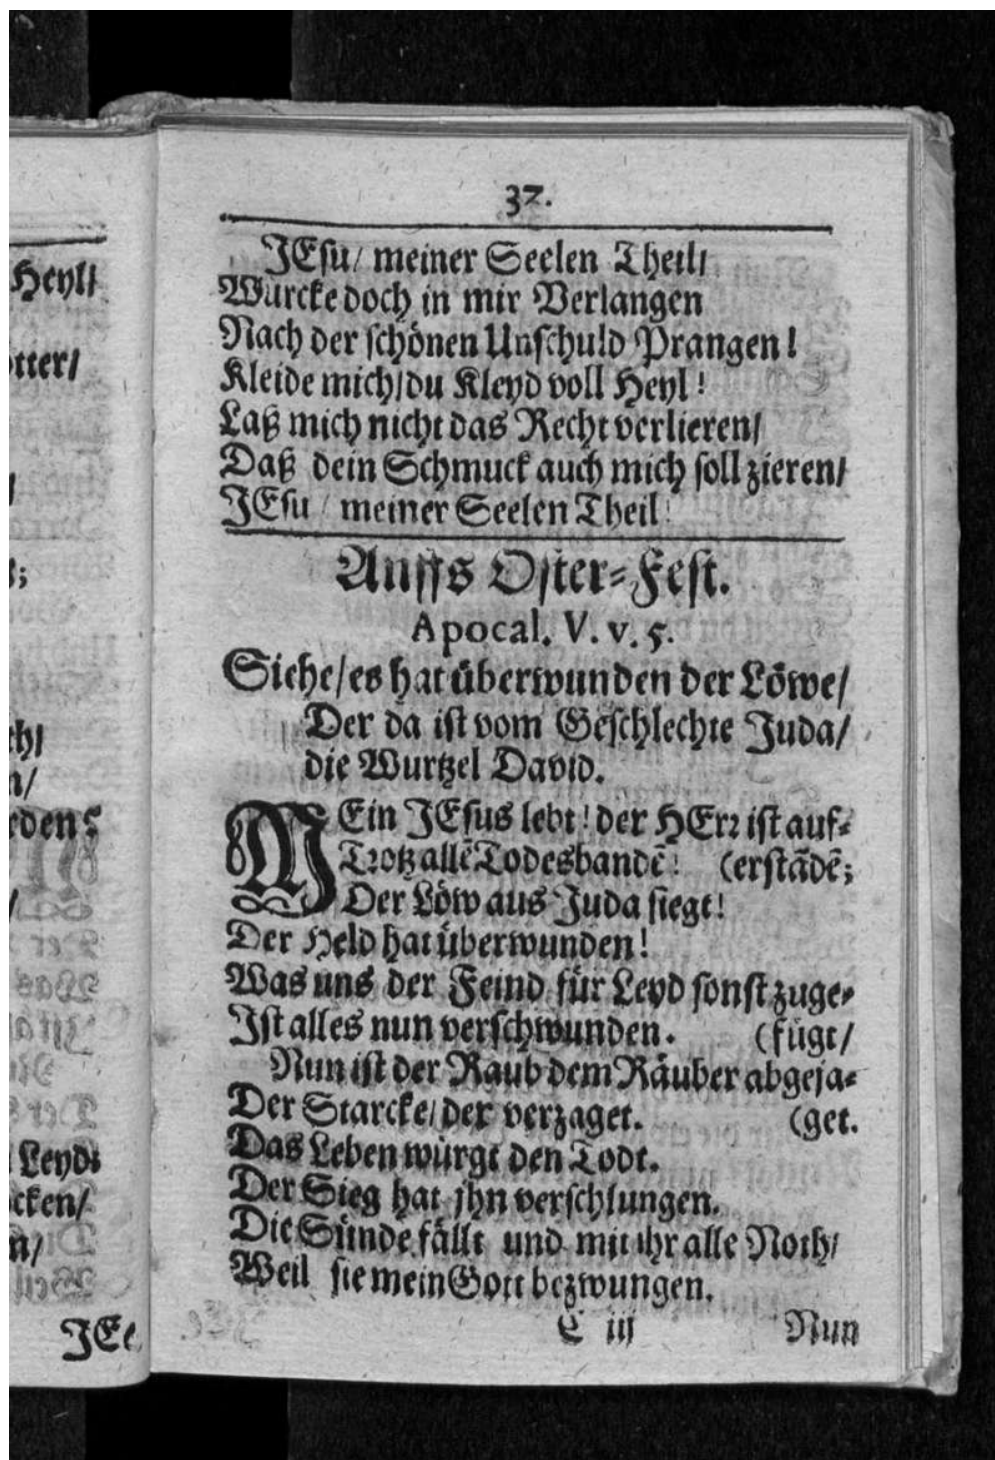 Heyl/
tter/
;
h/
n/
den?
/
Leyd:
cken/
n/
JEe
37.
JEsu/ meiner Seelen Theil/
Würcke doch in mir Verlangen
Nach der schönen Unschuld Prangen!
Kleide mich/du Kleyd voll Heyl!
Laß mich nicht das Recht verlieren/
Daß dein Schmuck auch mich soll zieren/
JEsu/ meiner Seelen Theil!
Auffs Oster-Fest.
Apocal. V. v. 5.
Siehe/es hat überwunden der Löwe/
Der da ist vom Geschlechte Juda/
die Wurtzel David.
MEin JEsus lebt! der HErr ist auf-
Trotz allẽ Todesbandẽ! (erstãdẽ;
Der Löw aus Juda siegt!
Der Held hat überwunden!
Was uns der Feind für Leyd sonst zuge-
Ist alles nun verschwunden. (fügt/
Nun ist der Raub dem Räuber abgeja-
Der Starcke/der verzaget. (get.
Das Leben würgt den Todt.
Der Sieg hat jhn verschlungen.
Die Sünde fällt und mit ihr alle Noth/
Weil sie mein Gott bezwungen.
C iij Nun